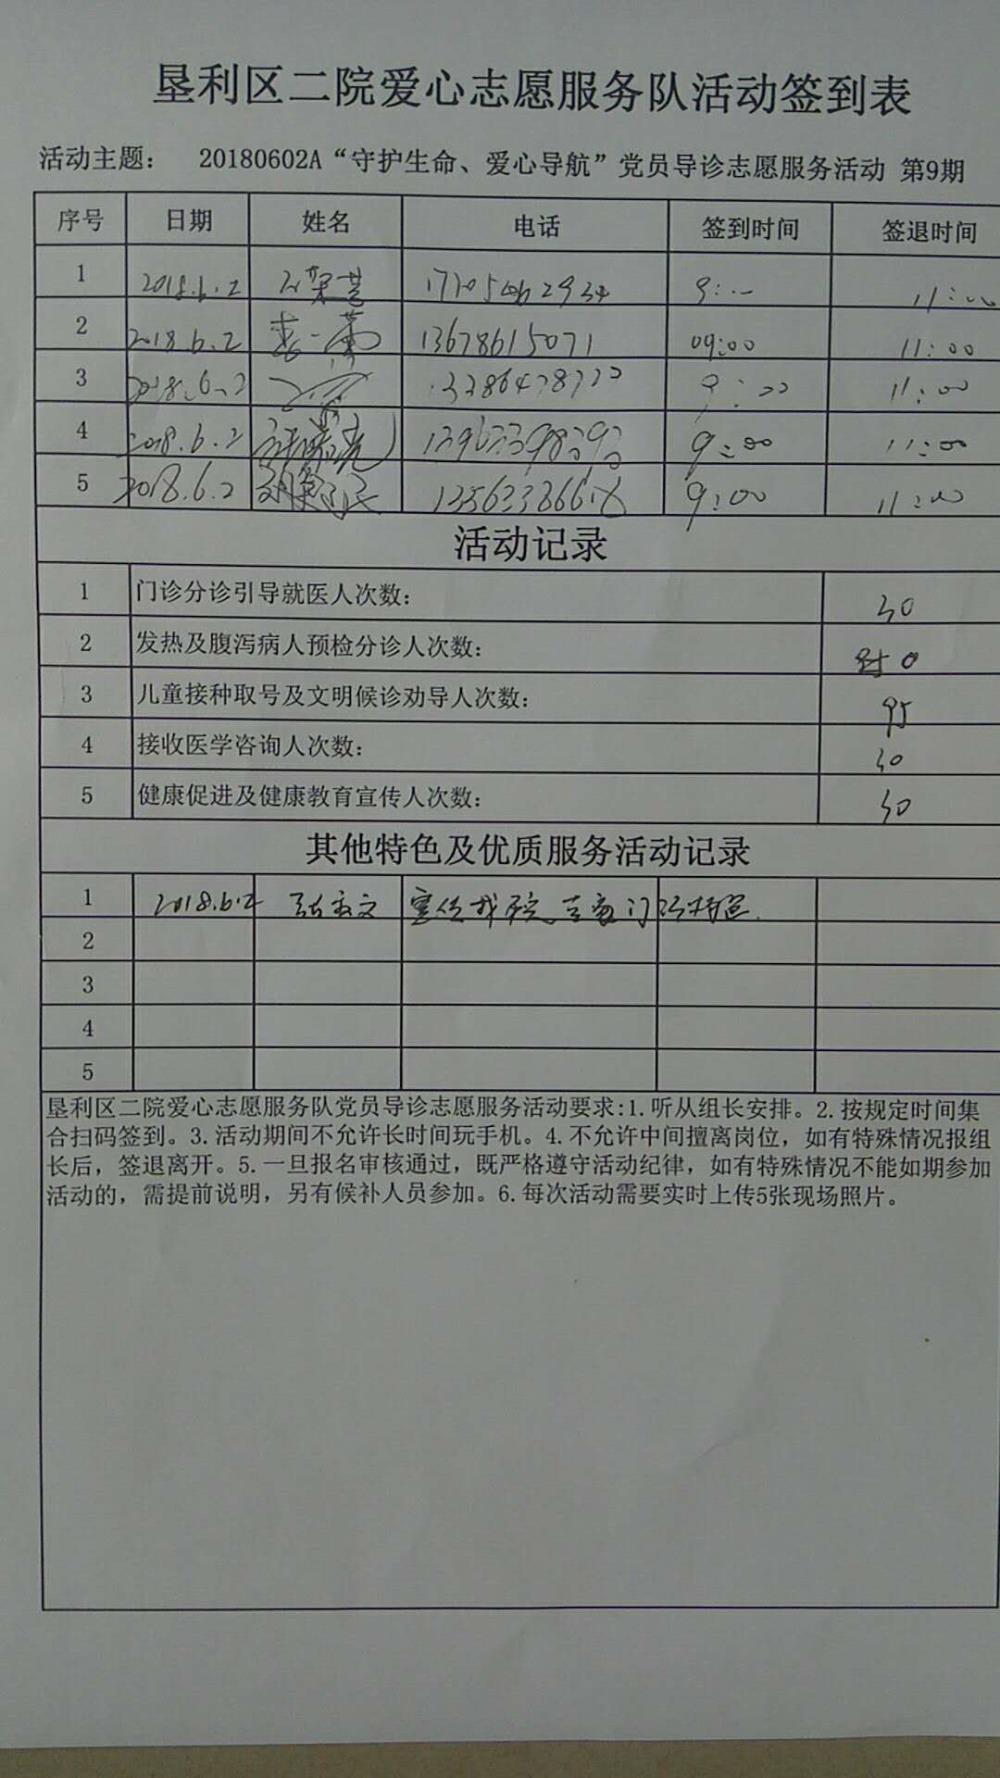 垦利区二院爱心志愿服务队活动签到表
活动主题： 20180602A“守护生命、爱心导航”党员导诊志愿服务活动 第9期
序号 日期 姓名 电话 签到时间 签退时间
1 2018.6.2 11:00
2 2018.6.2 13678615071 09:00 11:00
3 2018.6.2 9:00 11:00
4 2018.6.2 9:00 11:00
5 2018.6.2 9:00 11:00
活动记录
1 门诊分诊引导就医人次数：
2 发热及腹泻病人预检分诊人次数： 0
3 儿童接种取号及文明候诊劝导人次数： 95
4 接收医学咨询人次数：
5 健康促进及健康教育宣传人次数：
其他特色及优质服务活动记录
1 2018.6.2 宣传我院专家门诊
2
3
4
5
垦利区二院爱心志愿服务队党员导诊志愿服务活动要求:1.听从组长安排。2.按规定时间集
合扫码签到。3.活动期间不允许长时间玩手机。4.不允许中间擅离岗位，如有特殊情况报组
长后，签退离开。5.一旦报名审核通过，既严格遵守活动纪律，如有特殊情况不能如期参加
活动的，需提前说明，另有候补人员参加。6.每次活动需要实时上传5张现场照片。